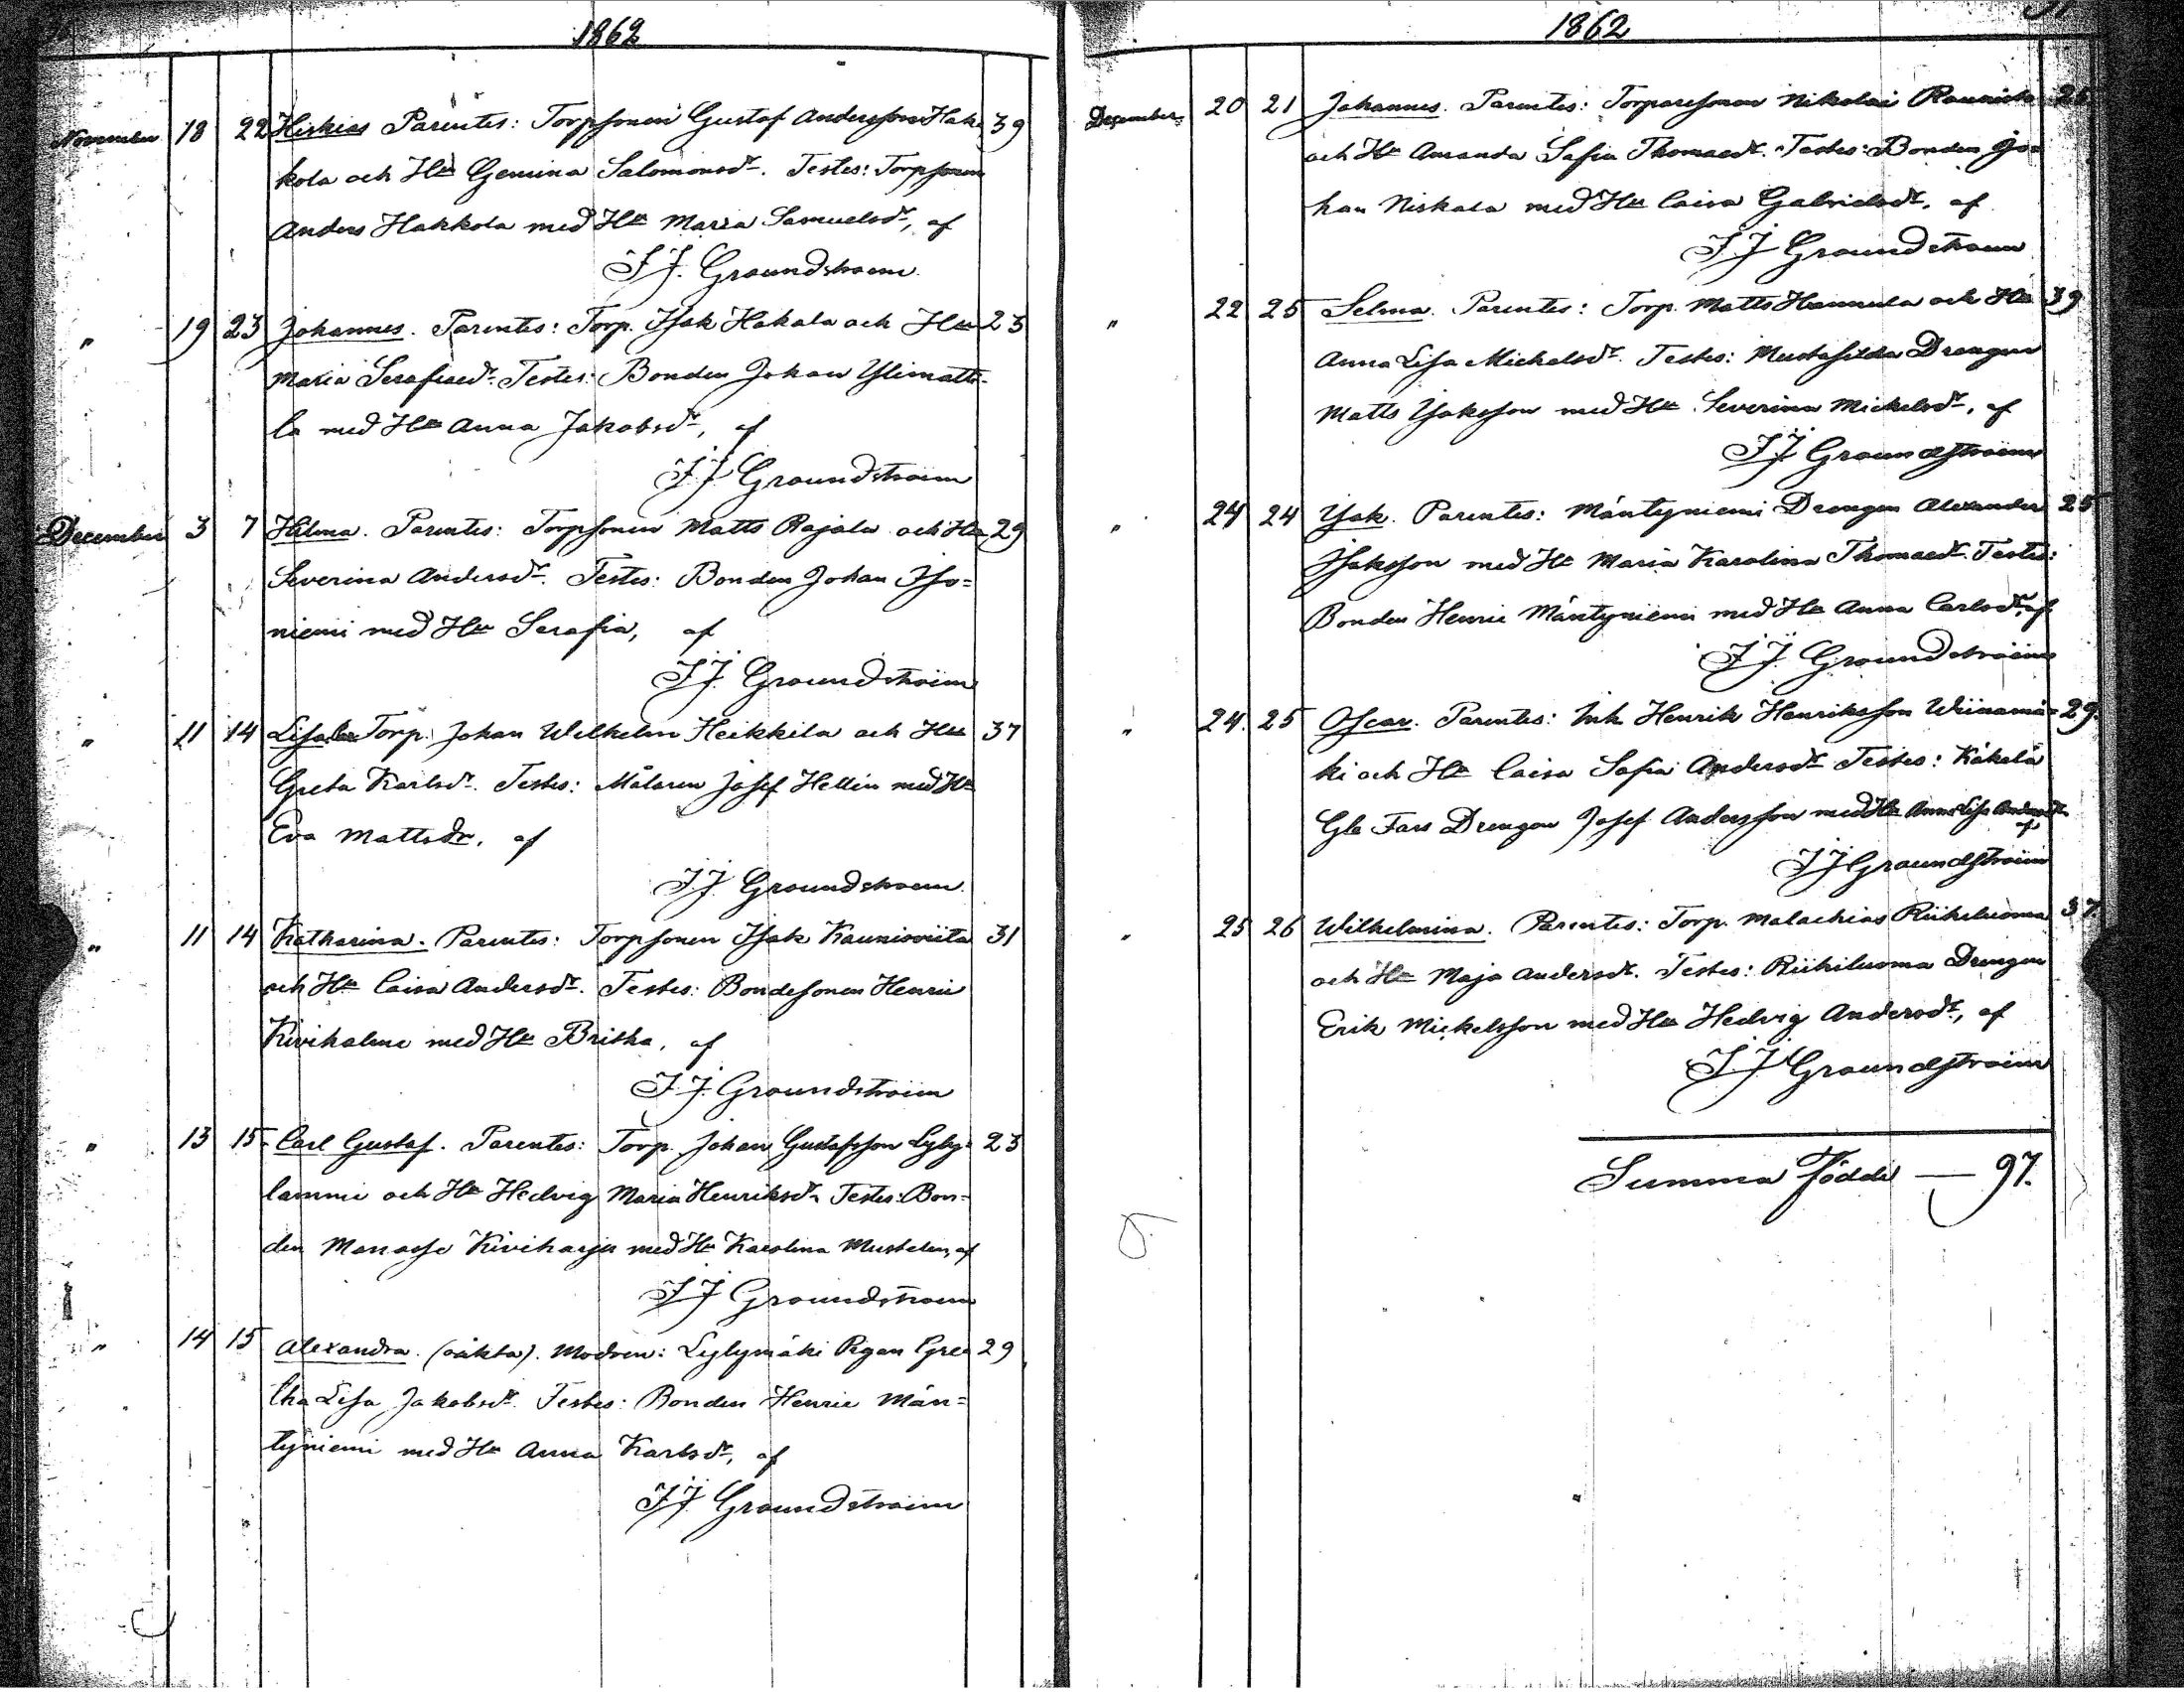 1862
November 18 22 Hiskias Parentes: Torpsonen Gustaf Andersson Hak- 39
kola och Hu Gemina Salomonsdr. Testes: Torpsonen
Anders Hakkola med Hu Maria Samuelsdr, af
J J. Groundstroem.
" 19 23 Johannes. Parentes: Torp. Isak Hakala och Hu 23
Maria Serafiaedr. Testes: Bonden Johan Ylimatti-
la med Hu Anna Jakobsdr, af
J J Groundstroem
December 3 7 Hilma. Parentes: Torpsonen Matts Rajala och Hu 29
Severina Andersdr. Testes: Bonden Johan Iso=
niemi med Hu Serafia, af
J J. Groundstroem
" 11 14 Lisa Torp. Johan Wilhelm Heikkila och Hu 37
Greta Karlsdr. Testes: Målaren Josef Hellin med Hu
Eva Mattsdr, af
J. J. Groundstroem
" 11 14 Katharina. Parentes: Torpsonen Isak Kaunisviita 31
och Hu Caisa Andersdr. Testes: Bondesonen Henric
Kiviholme med Hu Britha, af
J. J. Groundstroem
" 13 15 Carl Gustaf. Parentes: Torp. Johan Gustafsson Lyly= 23
lammi och Hu Hedvig Maria Henriksdr. Testes: Bon=
den Manasse Kiviharju med Hu Karolina Mustelin, af
J J Groundstroem
" 14 15 Alexandra. (oäkta). Modren: Lylymäki Pigan Gre= 29
tha Lisa Jakobsdr. Testes: Bonden Henric Män=
tyniemi med Hu Anna Karlsdr, af
J J. Groundstroem
1862
December 20 21 Johannes. Parentes: Torparesonen Nikolai
och Hu Amanda Sofia Thomaedr. Testes: Bonden Jo=
han Niskala med Hu Caisa Gabrielsdr, af
J J Groundstroem
" 22 25 Selma. Parentes: Torp. Matts Hannula och Hu 39
Anna Lisa Michelsdr. Testes: Drengen
Matts Isaksson med Hu Severina Mickelsdr, af
J J Groundstroem
" 24 24 Isak. Parentes: Mäntyniemi Drengen Alexander 25
Isaksson med Hu Maria Karolina Thomaedr. Testes:
Bonden Henric Mäntyniemi med Hu Anna Carlsdr, af
J J. Groundstroem
" 24. 25 Oscar. Parentes: Inh. Henrik Henriksson Wiinamä= 29.
ki och Hu Caisa Sofia Andersdr Testes: Käkelä
Gla Fars Drengen Josef Andersson med Hu Anna Lisa Andersdr
af
J J Groundstroem
" 25 26 Wilhelmina. Parentes: Torp. Malachias Riihiluoma 37.
och Hu Maja Andersdr. Testes: Riihiluoma Drengen
Erik Mickelsson med Hu Hedvig Andersdr, af
J. J Groundstroem
Summa Födde — 97.